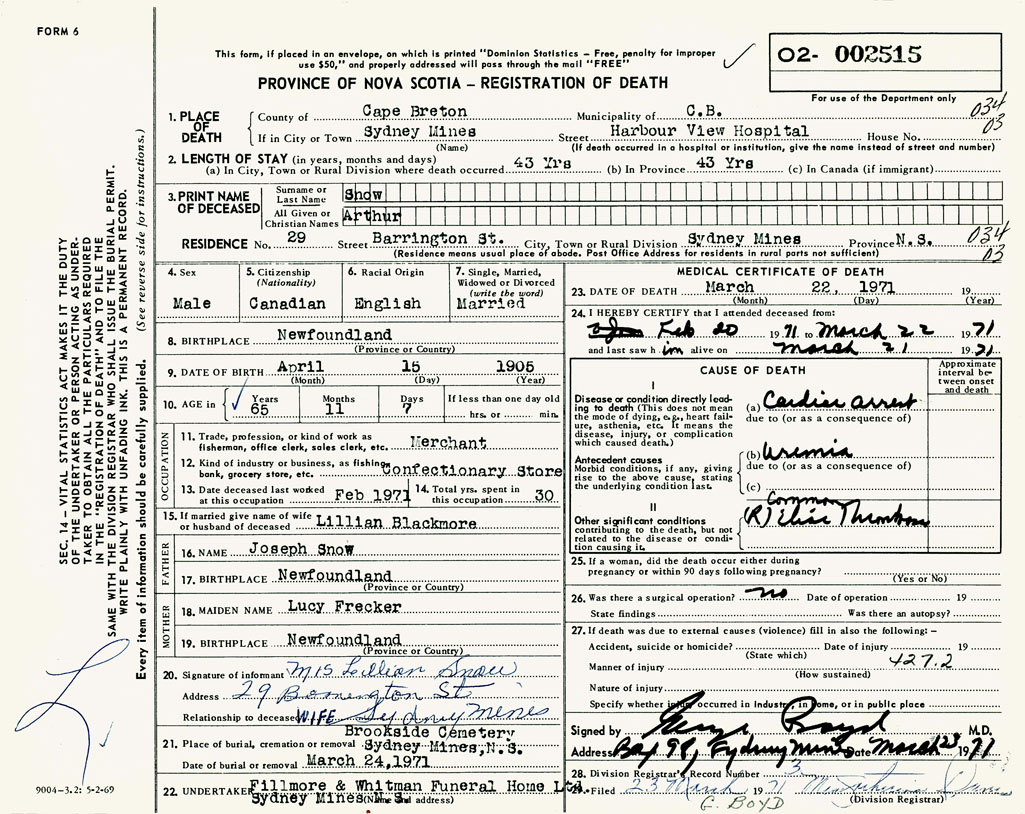 FORM 6
This form, if placed in an envelope, on which is printed "Dominion Statistics – Free, penalty for improper
use $50," and properly addressed will pass through the mail "FREE"
PROVINCE OF NOVA SCOTIA – REGISTRATION OF DEATH
02- 002515
For use of the Department only
034
03
1. PLACE OF DEATH
County of Cape Breton Municipality of C.B.
If in City or Town Sydney Mines Street Harbour View Hospital House No.
(Name) (If death occurred in a hospital or institution, give the name instead of street and number)
2. LENGTH OF STAY (in years, months and days)
(a) In City, Town or Rural Division where death occurred 43 Yrs (b) In Province 43 Yrs (c) In Canada (if immigrant)
3. PRINT NAME OF DECEASED
Surname or Last Name Snow
All Given or Christian Names Arthur
RESIDENCE No. 29 Street Barrington St. City, Town or Rural Division Sydney Mines Province N.S.
(Residence means usual place of abode. Post Office Address for residents in rural parts not sufficient)
034
03
4. Sex Male
5. Citizenship (Nationality) Canadian
6. Racial Origin English
7. Single, Married, Widowed or Divorced (write the word) Married
8. BIRTHPLACE Newfoundland
(Province or Country)
9. DATE OF BIRTH April 15 1905
(Month) (Day) (Year)
10. AGE in Years 65 Months 11 Days 7 If less than one day old hrs. or min.
OCCUPATION
11. Trade, profession, or kind of work as
fisherman, office clerk, sales clerk, etc. Merchant
12. Kind of industry or business, as fishing,
bank, grocery store, etc. Confectionary Store
13. Date deceased last worked at this occupation Feb 1971
14. Total yrs. spent in this occupation 30
15. If married give name of wife or husband of deceased Lillian Blackmore
FATHER
16. NAME Joseph Snow
17. BIRTHPLACE Newfoundland
(Province or Country)
MOTHER
18. MAIDEN NAME Lucy Frecker
19. BIRTHPLACE Newfoundland
(Province or Country)
20. Signature of informant Mrs Lillian Snow
Address 29 St
Relationship to deceased WIFE Sydney Mines
21. Place of burial, cremation or removal Brookside Cemetery
Sydney Mines, N.S.
Date of burial or removal March 24, 1971
22. UNDERTAKER Fillmore & Whitman Funeral Home Ltd.
Sydney Mines N.S.
(Name and address)
MEDICAL CERTIFICATE OF DEATH
23. DATE OF DEATH March 22, 1971 19
(Month) (Day) (Year)
24. I HEREBY CERTIFY that I attended deceased from:
Feb 20 1971 to March 22 1971
and last saw him alive on March 21 1971
CAUSE OF DEATH
Approximate interval between onset and death
I
Disease or condition directly leading to death (This does not mean the mode of dying, e.g., heart failure, asthenia, etc. It means the disease, injury, or complication which caused death.)
(a) Cardiac arrest
due to (or as a consequence of)
Antecedent causes
Morbid conditions, if any, giving rise to the above cause, stating the underlying condition last.
(b) Uremia
due to (or as a consequence of)
(c)
II
Other significant conditions
contributing to the death, but not related to the disease or condition causing it.
Common
(R) Iliac Thrombosis
25. If a woman, did the death occur either during
pregnancy or within 90 days following pregnancy?
(Yes or No)
26. Was there a surgical operation? no Date of operation 19
State findings Was there an autopsy?
27. If death was due to external causes (violence) fill in also the following: –
Accident, suicide or homicide? Date of injury 19
(State which)
427.2
Manner of injury
(How sustained)
Nature of injury
Specify whether injury occurred in Industry, in home, or in public place
Signed by George Boyd M.D.
Address Box 98, Sydney Mines Date March 23 1971
28. Division Registrar's Record Number 3
29. Filed 23 March 1971
(Division Registrar)
G. BOYD
SEC. 14 – VITAL STATISTICS ACT MAKES IT THE DUTY
OF THE UNDERTAKER OR PERSON ACTING AS UNDER-
TAKER TO OBTAIN ALL THE PARTICULARS REQUIRED
IN THE "REGISTRATION OF DEATH" AND TO FILE THE
SAME WITH THE DIVISION REGISTRAR WHO SHALL ISSUE THE BURIAL PERMIT.
WRITE PLAINLY WITH UNFADING INK. THIS IS A PERMANENT RECORD.
Every item of information should be carefully supplied. (See reverse side for instructions.)
9004-3.2: 5-2-69